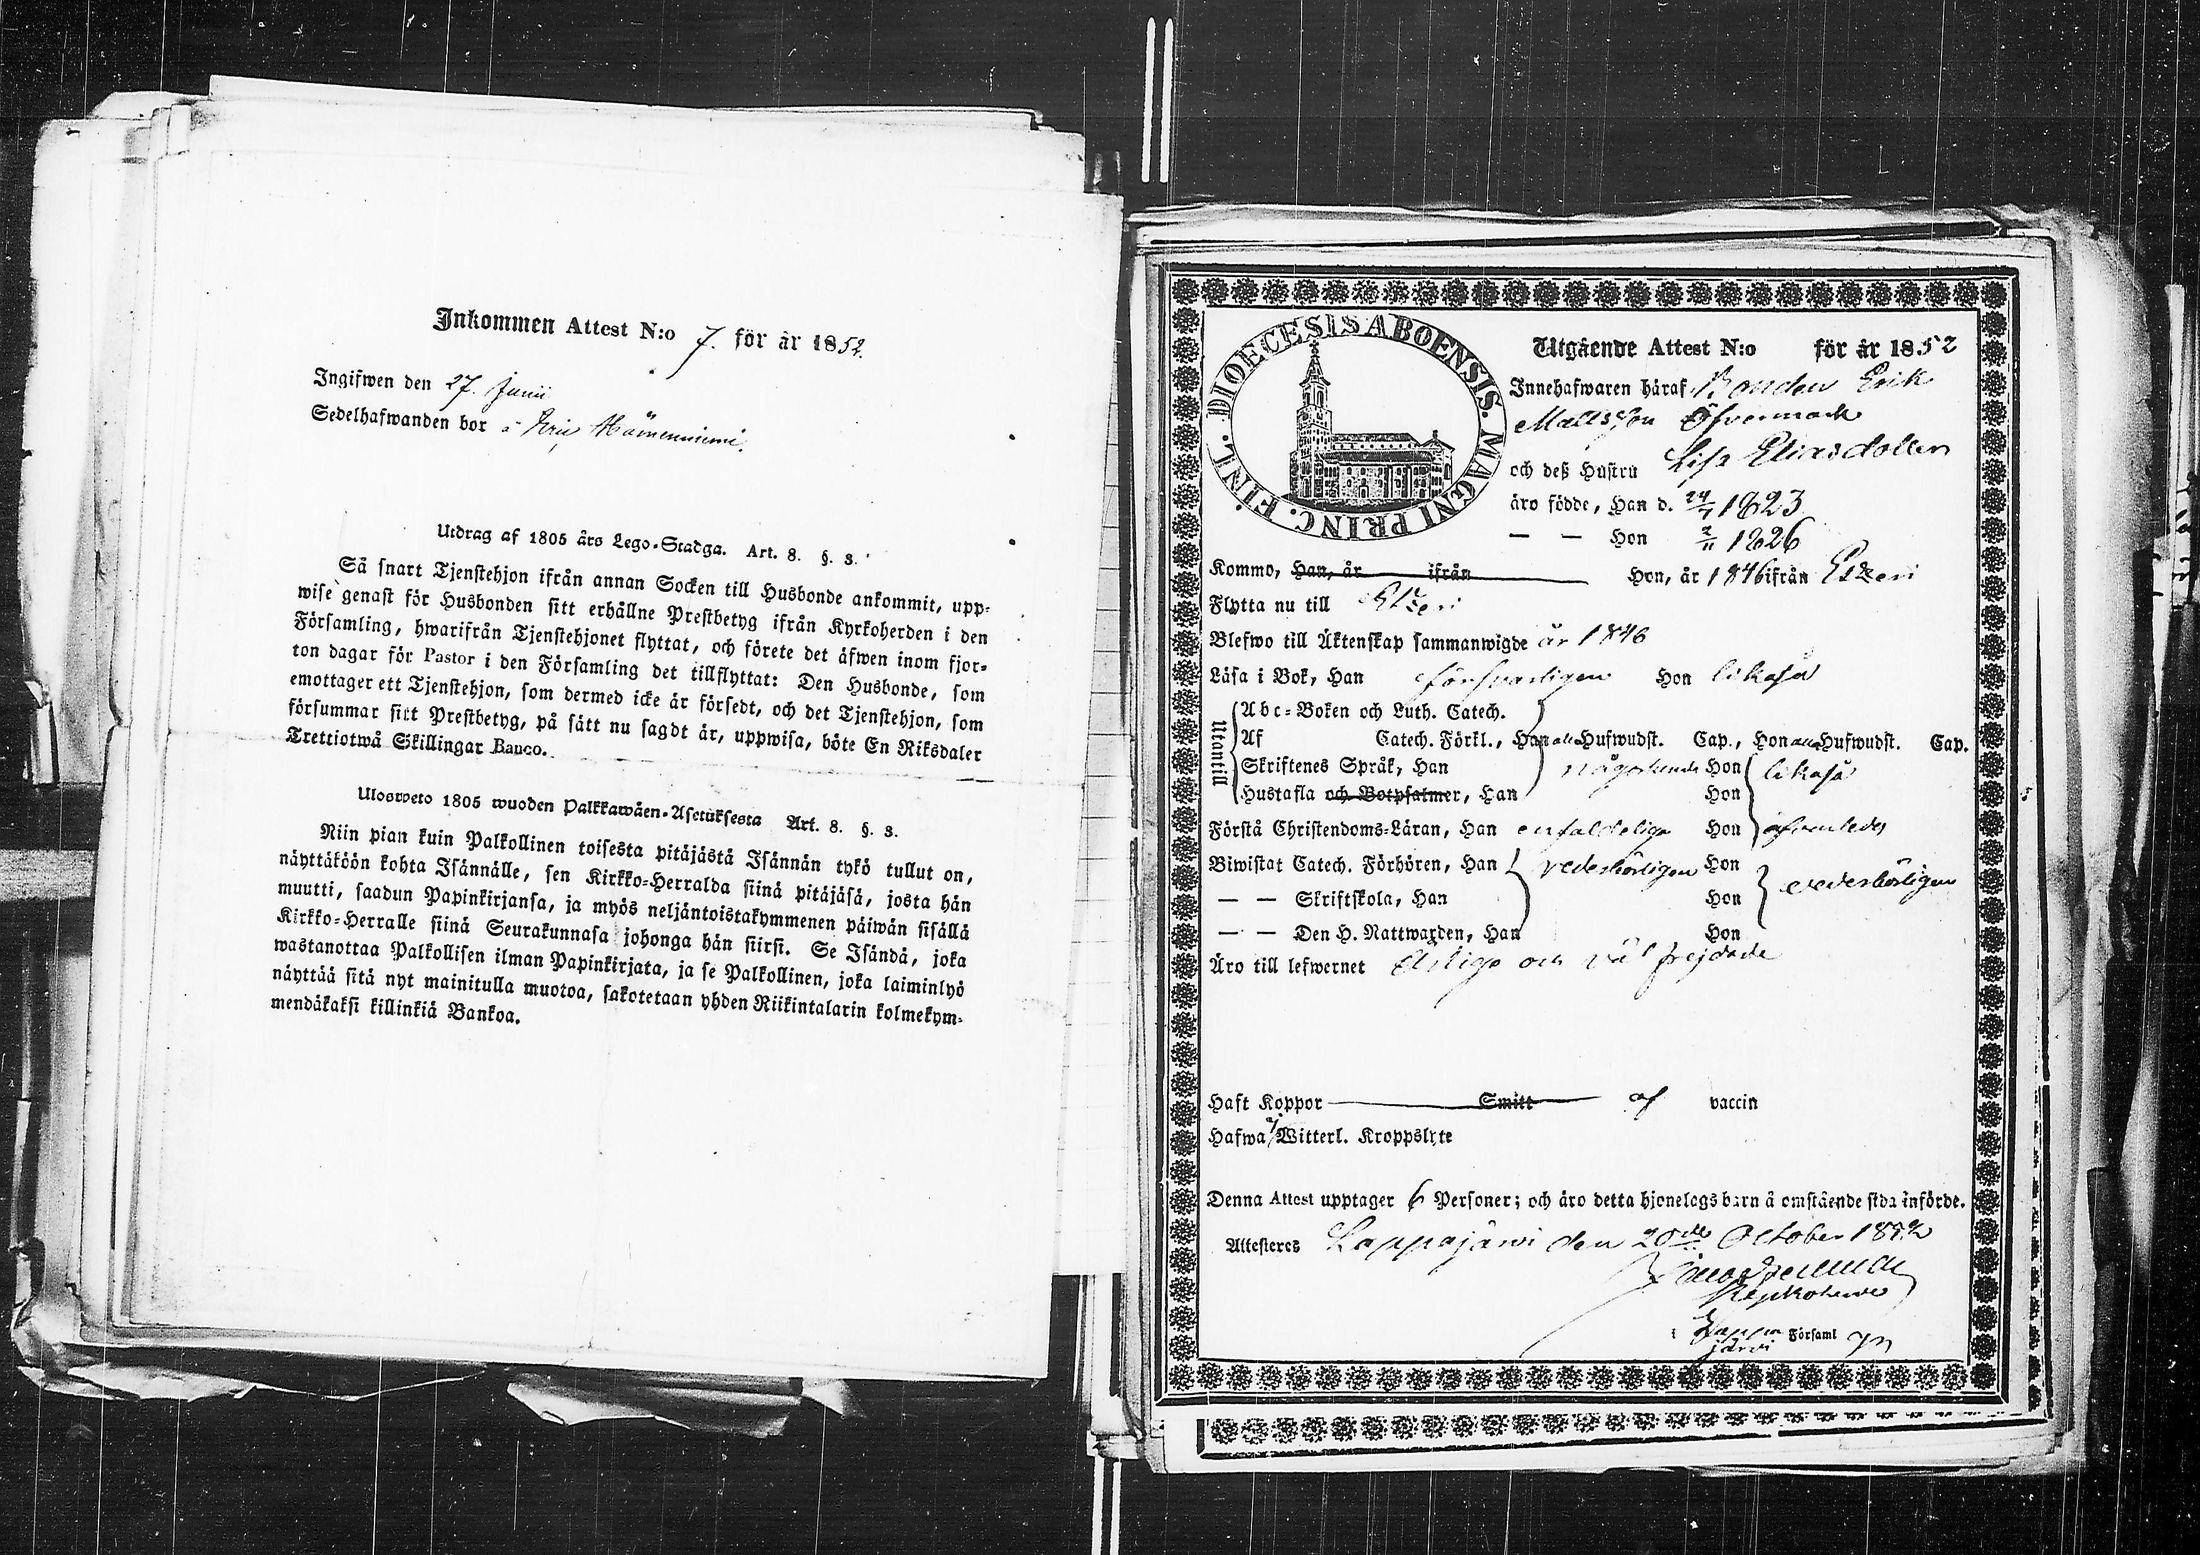 Inkommen Attest N:o 7. för år 1852.
Ingifwen den 27. Junii
Sedelhafwanden bor å
Utdrag af 1805 års Lego-Stadga. Art. 8. §. 3.
Så snart Tjenstehjon ifrån annan Socken till Husbonde ankommit, upp-
wise genast för Husbonden sitt erhållne Prestbetyg ifrån Kyrkoherden i den
Församling, hwarifrån Tjenstehjonet flyttat, och förete det äfwen inom fjor-
ton dagar för Pastor i den Församling det tillflyttat: Den Husbonde, som
emottager ett Tjenstehjon, som dermed icke är försedt, och det Tjenstehjon, som
försummar sitt Prestbetyg, på sätt nu sagdt är, uppwisa, böte En Riksdaler
Trettiotwå Skillingar Banco.
Ulosweto 1805 wuoden Palkkawäen-Asetuksesta Art. 8. §. 3.
Niin pian kuin Palkollinen toisesta pitäjästä Isännän tykö tullut on,
näyttäköön kohta Isännälle, sen Kirkko-Herralda siinä pitäjäsä, josta hän
muutti, saadun Papinkirjansa, ja myös neljäntoistakymmenen päiwän sisällä
Kirkko-Herralle siinä Seurakunnasa johonga hän siirsi. Se Isändä, joka
wastanottaa Palkollisen ilman Papinkirjata, ja se Palkollinen, joka laiminlyö
näyttää sitä nyt mainitulla muotoa, sakotetaan yhden Riikintalarin kolmekym-
mendäkaksi killinkiä Bankoa.
DIOECESIS ABOENSIS. MAGNI PRINC. FINL.
Utgående Attest N:o för år 1852
Innehafwaren häraf Bonden Erik
Mattsson Öfvermark
och deß Hustru Lisa Eliasdotter
äro födde, Han d. 24/7 1823
— — Hon 2/11 1826
Kommo, Han, år ifrån Hon, år 1846 ifrån Etseri
Flytta nu till Etseri
Blefwo till Äktenskap sammanwigde år 1846
Läsa i Bok, Han försvarligen Hon likaså
Utantill
Abc-Boken och Luth. Catech.
Af Catech. Förkl., Han alla Hufwudst. Cap., Hon alla Hufwudst. Cap.
Skriftenes Språk, Han någorlunda Hon likaså
Hustafla och Botpsalmer, Han Hon
Förstå Christendoms-Läran, Han enfaldelige Hon äfvenledes
Biwistat Catech. Förhören, Han vederbörligen Hon vederbörligen
— — Skriftskola, Han Hon
— — Den H. Nattwarden, Han Hon
Äro till lefwernet ärlige och väl frejdade
Haft Koppor Smitt af vaccin
Hafwa Witterl. Kroppslyte
Denna Attest upptager 6 Personer; och äro detta hjonelags barn å omstående sida införde.
Attesteres Lappajärwi den 20de October 1852
Kyrkoherde
i Lappajärvi Församl